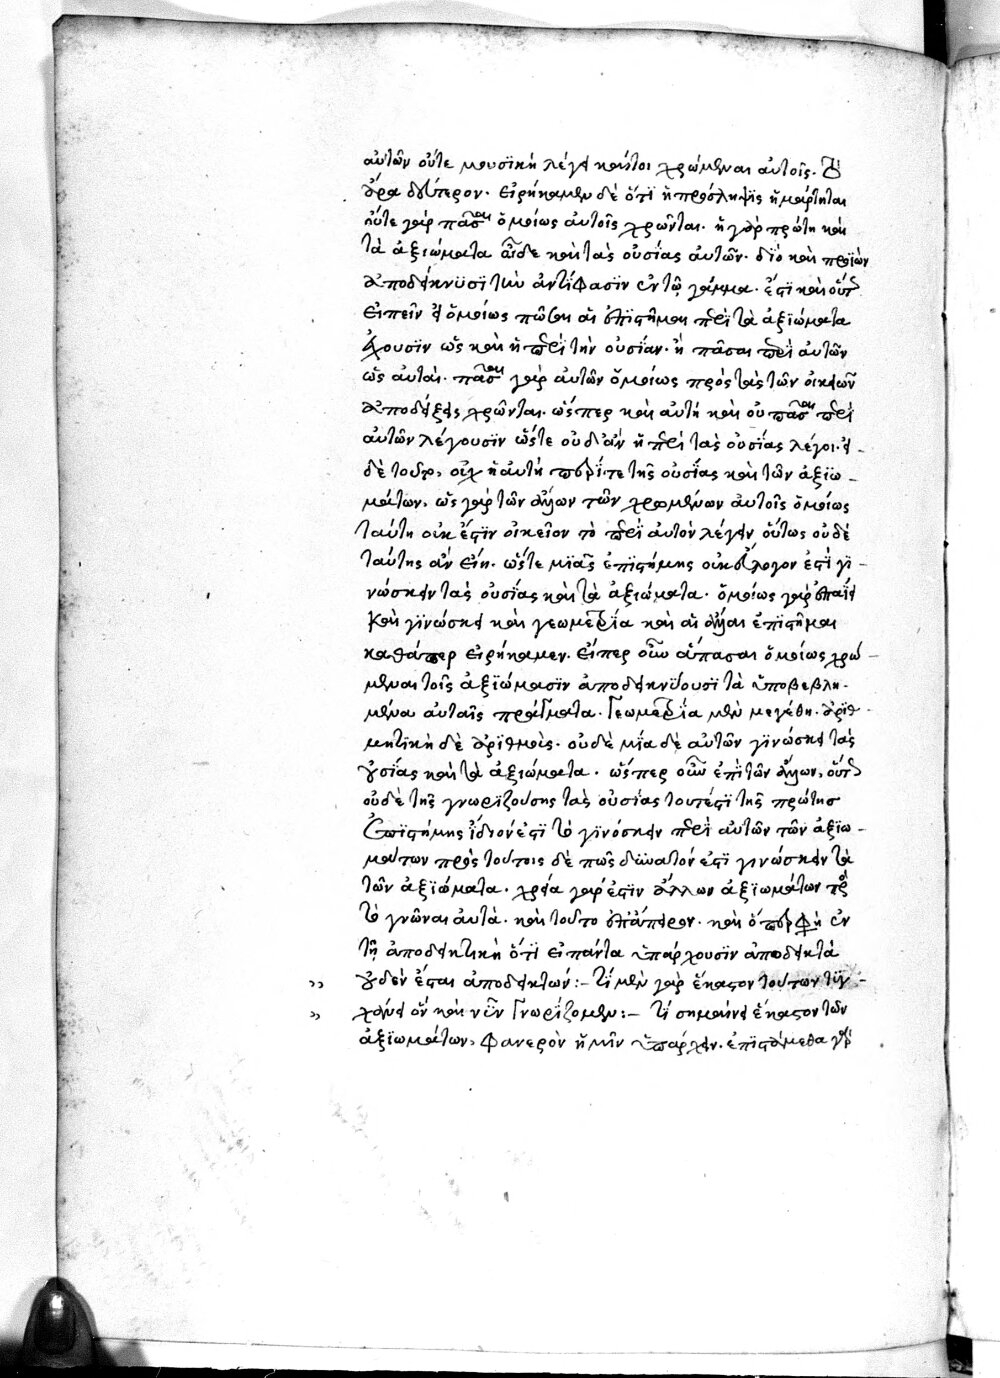 αυτῶν οὔτε μουσϊκὴ λέγει καίτοι χρώμεναι αὐτοῖς. τὸ
ἄρα δεύτερον. εἰρήκαμεν δὲ ὅτϊ ἡ πρόσληψϊς ἡμάρτηται
οὔτε γὰρ πᾶσαι ὁμοίως αὐτοῖς χρῶνται. ἡ γὰρ πρώτη καὶ
τὰ ἀξϊώματα οἶδε καὶ τὰς οὐσίας αὐτῶν. δϊὸ καὶ προϊὼν
ἀποδείκνϋσϊ τὴν ἀντίφασϊν ἐν τῷ γάμμα. ἔστϊ καὶ οὕτως
εἰπεῖν εἰ ὁμοίως πᾶσαι αἱ ἐπϊστῆμαι περὶ τὰ ἀξϊώματα
ἔχουσϊν ὡς καὶ ἡ περὶ τὴν οὐσίαν. ἢ πᾶσαι περὶ αὐτῶν
ὡς αὐταὶ. πᾶσαι γὰρ αὐτῶν ὁμοίως πρὸς τὰς τῶν οἰκείων
ἀποδείξεις χρῶνται. ὥσπερ καὶ αὐτὴ καὶ οὐ πᾶσαι περὶ
αὐτῶν λέγουσϊν ὥστε οὐδ' ἂν ἡ περὶ τὰς οὐσίας λέγοι. εἰ
δὲ τοῦτο, οὐχ ἡ αὐτὴ περί τε τῆς οὐσίας καὶ τῶν ἀξϊω-
μάτων. ὡς γὰρ τῶν ἄλλων τῶν χρωμένων αὐτοῖς ὁμοίως
ταύτη οὐκ ἔστϊν οἰκεῖον τὸ περὶ αὐτὸν λέγειν οὕτως οὐδὲ
ταύτης ἂν εἴη. ὥστε μϊᾶς ἐπϊστήμης οὐκ εὔλογον ἐστὶ γϊ-
νώσκειν τὰς οὐσίας καὶ τὰ ἀξϊώματα. ὁμοίως γὰρ
καὶ γϊνώσκει καὶ γεωμετρία καὶ αἱ ἄλλαι ἐπϊστῆμαι
καθάπερ εἰρήκαμεν. εἴπερ οὖν ἅπασαι ὁμοίως χρώ-
μεναι τοῖς ἀξϊώμασϊν ἀποδεικνύουσϊ τὰ ὑποβεβλη-
μένα αὐταῖς πράγματα. Γεωμετρία μὲν μεγέθη. ἀρϊθ-
μητϊκὴ δὲ ἀρϊθμοὺς. οὐδὲ μία δὲ αὐτῶν γϊνώσκει τὰς
οὐσίας καὶ τὰ ἀξϊώματα. ὥσπερ οὖν ἐπὶ τῶν ἄλλων, οὕτως
οὐδὲ τῆς γνωρϊζούσης τὰς οὐσίας τουτέστϊ τῆς πρώτησ
ἐπϊστήμης ἴδϊόν ἐστϊ τὸ γϊνόσκειν περὶ αὐτῶν τῶν ἀξϊω-
μάτων πρὸς τούτοις δὲ πῶς δϋνατόν ἐστϊ γινώσκειν τὰ
τῶν ἀξϊώματα. χρεία γάρ ἐστϊν ἄλλων ἀξϊωμάτων πρὸς
τὸ γνῶναι αὐτὰ. καὶ τοῦτο ἐπ' ἄπειρον. καὶ ὅπερ ἔφη ἐν
τῇ ἀποδεικτϊκῇ ὅτϊ εἰ πάντα ὑπάρχουσϊν ἀποδεικτὰ
οὐδὲν ἔσται ἀποδεικτόν:- Τί μὲν γὰρ ἕκαστον τούτων τϋγ-
χάνει ὂν καὶ νῦν Γνωρίζομεν:- Τί σημαίνει ἕκαστον τῶν
ἀξϊωμάτων, φανερὸν ἡμῖν ὑπάρχειν. ἐπϊστάμεθα γὰρ